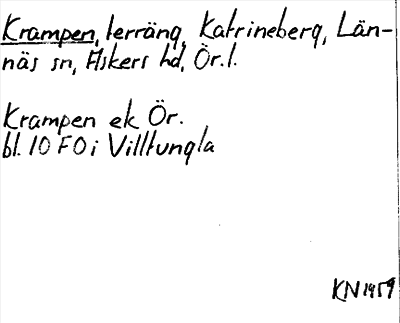 Krampen, terräng, Katrineberg, Län-
näs sn, Askers hd, Ör. l.
Krampen ek Ör.
bl. 10 FO i Villtungla
KN 1959